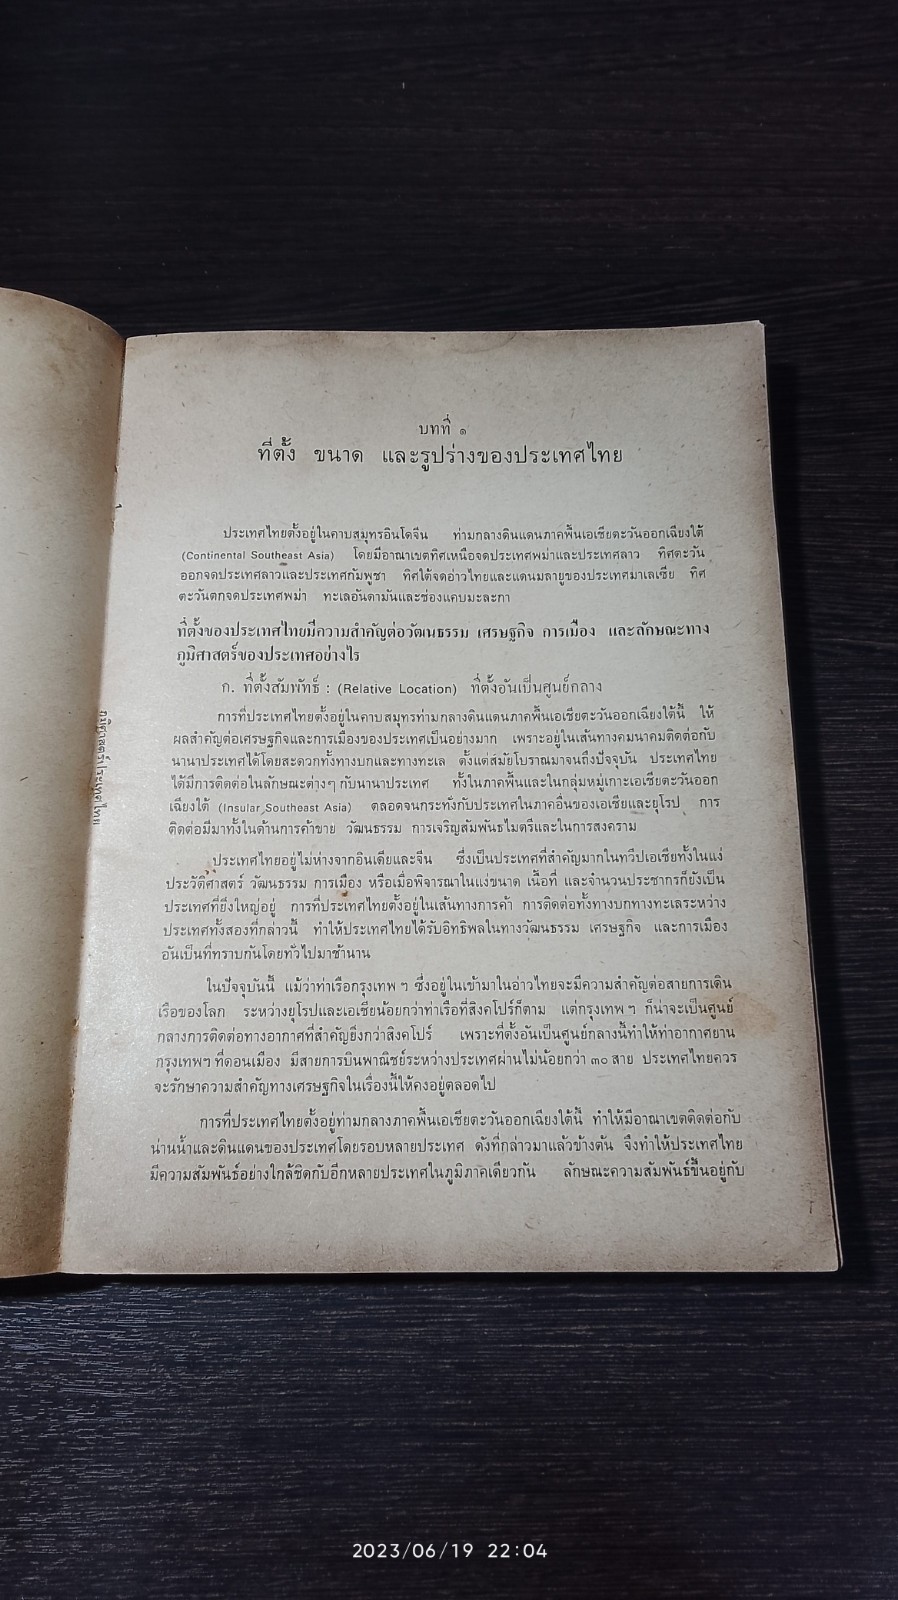 บทที่ ๑
ที่ตั้ง ขนาด และรูปร่างของประเทศไทย
ประเทศไทยตั้งอยู่ในคาบสมุทรอินโดจีน ท่ามกลางดินแดนภาคพื้นเอเชียตะวันออกเฉียงใต้
(Continental Southeast Asia) โดยมีอาณาเขตทิศเหนือจดประเทศพม่าและประเทศลาว ทิศตะวัน
ออกจดประเทศลาวและประเทศกัมพูชา ทิศใต้จดอ่าวไทยและแดนมลายูของประเทศมาเลเซีย ทิศ
ตะวันตกจดประเทศพม่า ทะเลอันดามันและช่องแคบมะละกา
ที่ตั้งของประเทศไทยมีความสำคัญต่อวัฒนธรรม เศรษฐกิจ การเมือง และลักษณะทาง
ภูมิศาสตร์ของประเทศอย่างไร
ก. ที่ตั้งสัมพัทธ์ : (Relative Location) ที่ตั้งอันเป็นศูนย์กลาง
การที่ประเทศไทยตั้งอยู่ในคาบสมุทรท่ามกลางดินแดนภาคพื้นเอเชียตะวันออกเฉียงใต้นี้ ให้
ผลสำคัญต่อเศรษฐกิจและการเมืองของประเทศเป็นอย่างมาก เพราะอยู่ในเส้นทางคมนาคมติดต่อกับ
นานาประเทศได้โดยสะดวกทั้งทางบกและทางทะเล ตั้งแต่สมัยโบราณมาจนถึงปัจจุบัน ประเทศไทย
ได้มีการติดต่อในลักษณะต่างๆ กับนานาประเทศ ทั้งในภาคพื้นและในกลุ่มหมู่เกาะเอเชียตะวันออก
เฉียงใต้ (Insular Southeast Asia) ตลอดจนกระทั่งกับประเทศในภาคอื่นของเอเชียและยุโรป การ
ติดต่อมีมาทั้งในด้านการค้าขาย วัฒนธรรม การเจริญสัมพันธไมตรีและในการสงคราม
ประเทศไทยอยู่ไม่ห่างจากอินเดียและจีน ซึ่งเป็นประเทศที่สำคัญมากในทวีปเอเชียทั้งในแง่
ประวัติศาสตร์ วัฒนธรรม การเมือง หรือเมื่อพิจารณาในแง่ขนาด เนื้อที่ และจำนวนประชากรก็ยังเป็น
ประเทศที่ยิ่งใหญ่อยู่ การที่ประเทศไทยตั้งอยู่ในเส้นทางการค้า การติดต่อทั้งทางบกทางทะเลระหว่าง
ประเทศทั้งสองที่กล่าวนี้ ทำให้ประเทศไทยได้รับอิทธิพลในทางวัฒนธรรม เศรษฐกิจ และการเมือง
อันเป็นที่ทราบกันโดยทั่วไปมาช้านาน
ในปัจจุบันนี้ แม้ว่าท่าเรือกรุงเทพ ฯ ซึ่งอยู่ในเข้ามาในอ่าวไทยจะมีความสำคัญต่อสายการเดิน
เรือของโลก ระหว่างยุโรปและเอเชียน้อยกว่าท่าเรือที่สิงคโปร์ก็ตาม แต่กรุงเทพ ฯ ก็น่าจะเป็นศูนย์
กลางการติดต่อทางอากาศที่สำคัญยิ่งกว่าสิงคโปร์ เพราะที่ตั้งอันเป็นศูนย์กลางนี้ทำให้ท่าอากาศยาน
กรุงเทพฯ ที่ดอนเมือง มีสายการบินพาณิชย์ระหว่างประเทศผ่านไม่น้อยกว่า ๓๐ สาย ประเทศไทยควร
จะรักษาความสำคัญทางเศรษฐกิจในเรื่องนี้ให้คงอยู่ตลอดไป
การที่ประเทศไทยตั้งอยู่ท่ามกลางภาคพื้นเอเชียตะวันออกเฉียงใต้นี้ ทำให้มีอาณาเขตติดต่อกับ
น่านน้ำและดินแดนของประเทศโดยรอบหลายประเทศ ดังที่กล่าวมาแล้วข้างต้น จึงทำให้ประเทศไทย
มีความสัมพันธ์อย่างใกล้ชิดกับอีกหลายประเทศในภูมิภาคเดียวกัน ลักษณะความสัมพันธ์ขึ้นอยู่กับ
ภูมิศาสตร์ประเทศไทย
2023/06/19 22:04